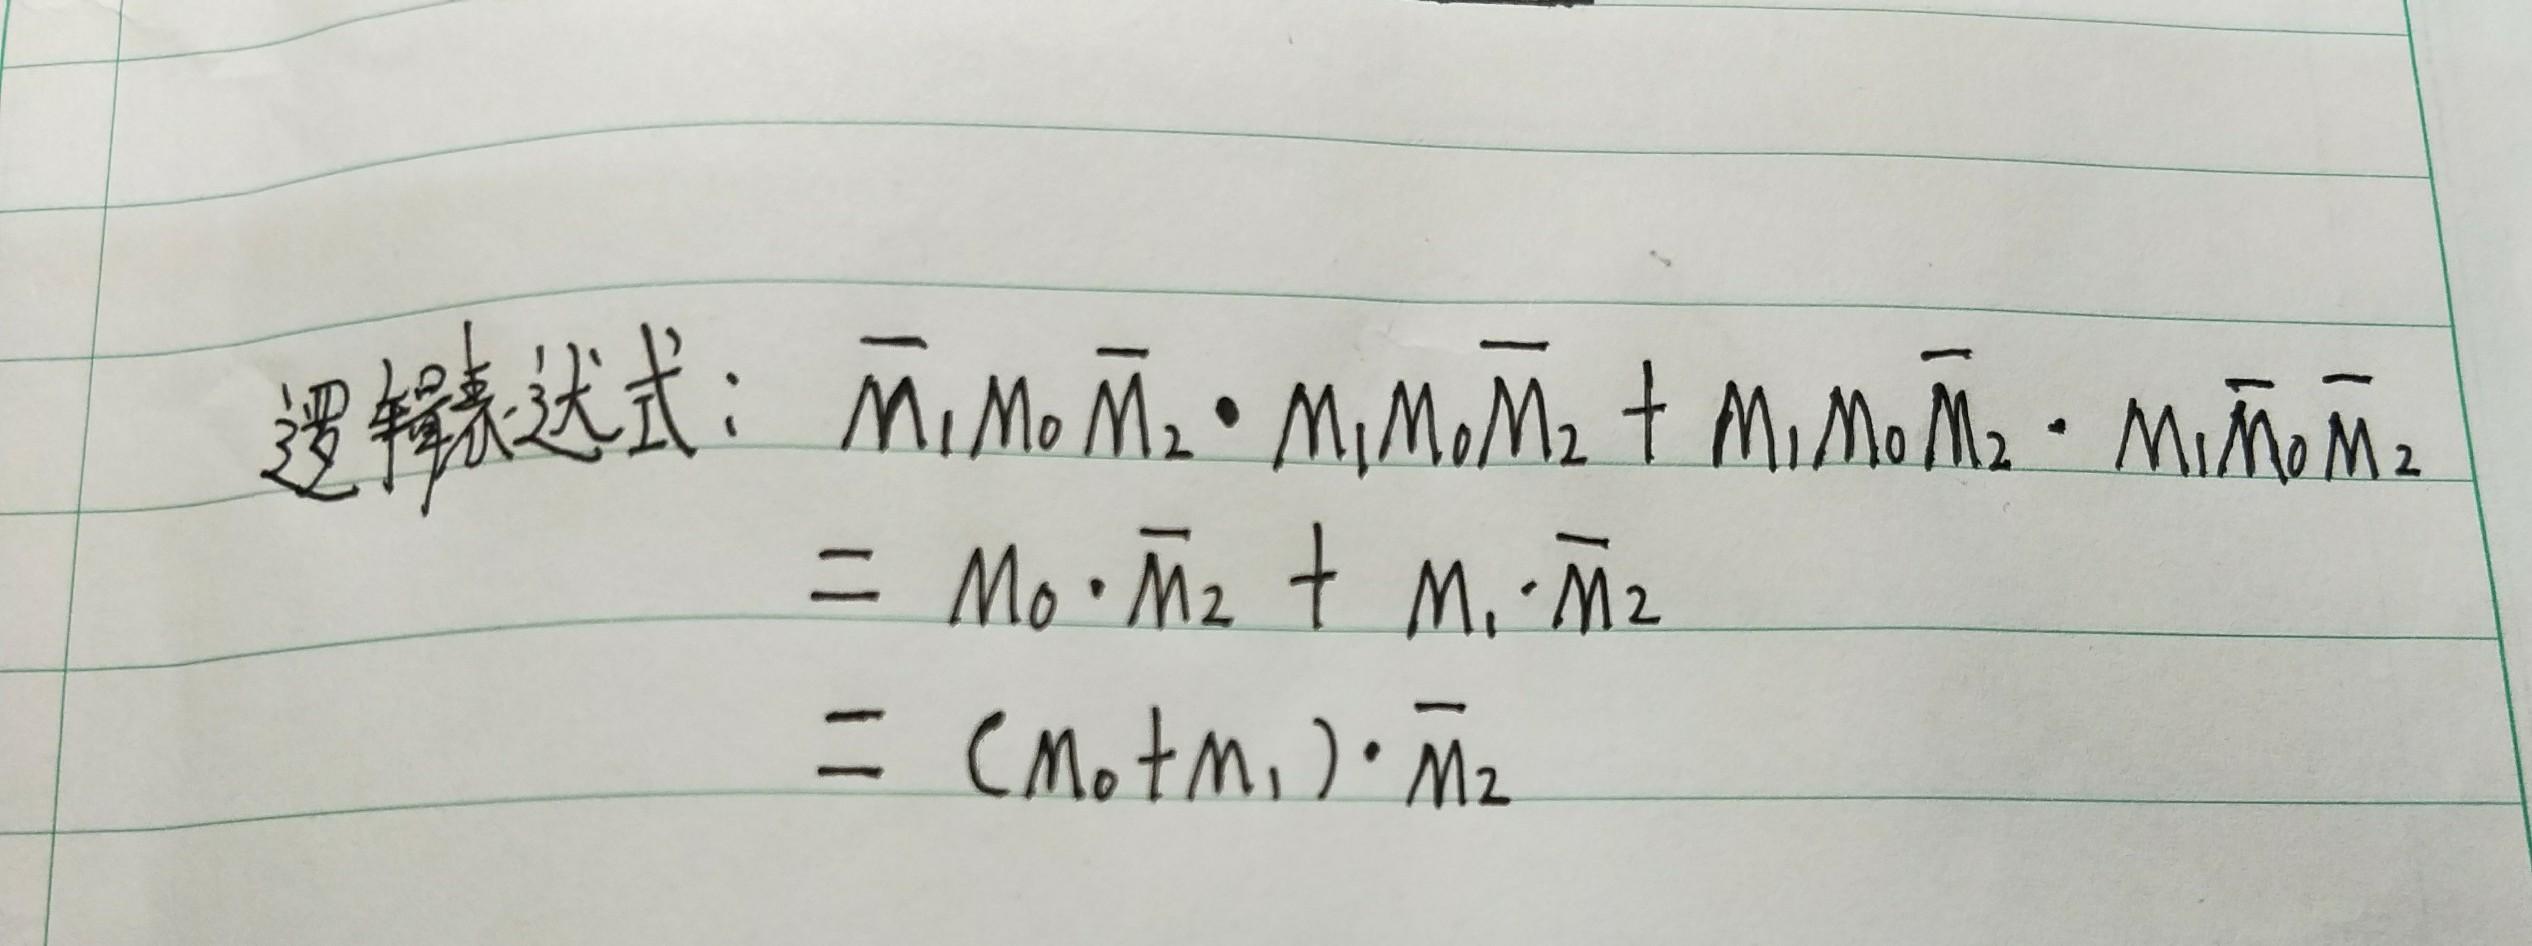 逻辑表达式: M̅₁M₀M̅₂·M₁M₀M̅₂+M₁M₀M̅₂·M₁M̅₀M̅₂
= M₀·M̅₂ + M₁·M̅₂
= (M₀+M₁)·M̅₂